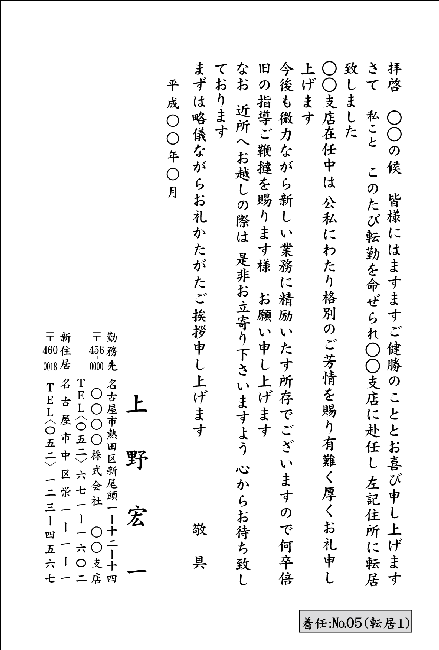 拝啓　〇〇の候　皆様にはますますご健勝のこととお喜び申し上げます
さて　私こと　このたび転勤を命ぜられ〇〇支店に赴任し左記住所に転居
致しました
〇〇支店在任中は公私にわたり格別のご芳情を賜り有難く厚くお礼申し
上げます
今後も微力ながら新しい業務に精励いたす所存でございますので何卒倍
旧の指導ご鞭撻を賜ります様　お願い申し上げます
なお　近所へお越しの際は　是非お立寄り下さいますよう　心からお待ち致し
ております
まずは略儀ながらお礼かたがたご挨拶申し上げます　敬具
平成〇〇年〇月
上野宏一
勤務先　名古屋市熱田区新尾頭一ー十二ー十四
〒456-0000　〇〇〇〇株式会社　〇〇支店
TEL〈〇五二〉六七一ー一六〇二
新住居　名古屋市中区栄一ー一ー一
〒460-0018　TEL〈〇五二〉一二三ー四五六七
着任:No.05(転居1)